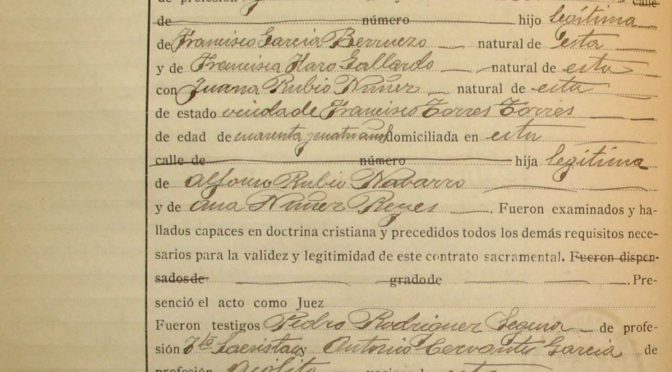 de profesión
calle
de número hijo legítima
de Francisco García Berruezo natural de esta
y de Francisca Haro Gallardo natural de esta
con Juana Rubio Núñez natural de esta
de estado viuda de Francisco Torres Torres
de edad de cuarenta y cuatro años domiciliada en esta
calle de número hija legítima
de Alfonso Rubio Navarro
y de Ana Núñez Reyes. Fueron examinados y ha-
llados capaces en doctrina cristiana y precedidos todos los demás requisitos nece-
sarios para la validez y legitimidad de este contrato sacramental. Fueron dispen-
sados de grado de . Pre-
senció el acto como Juez
Fueron testigos Pedro Rodríguez Segura de profe-
sión Sacristán y Antonio Cervantes García de
profesión acólito